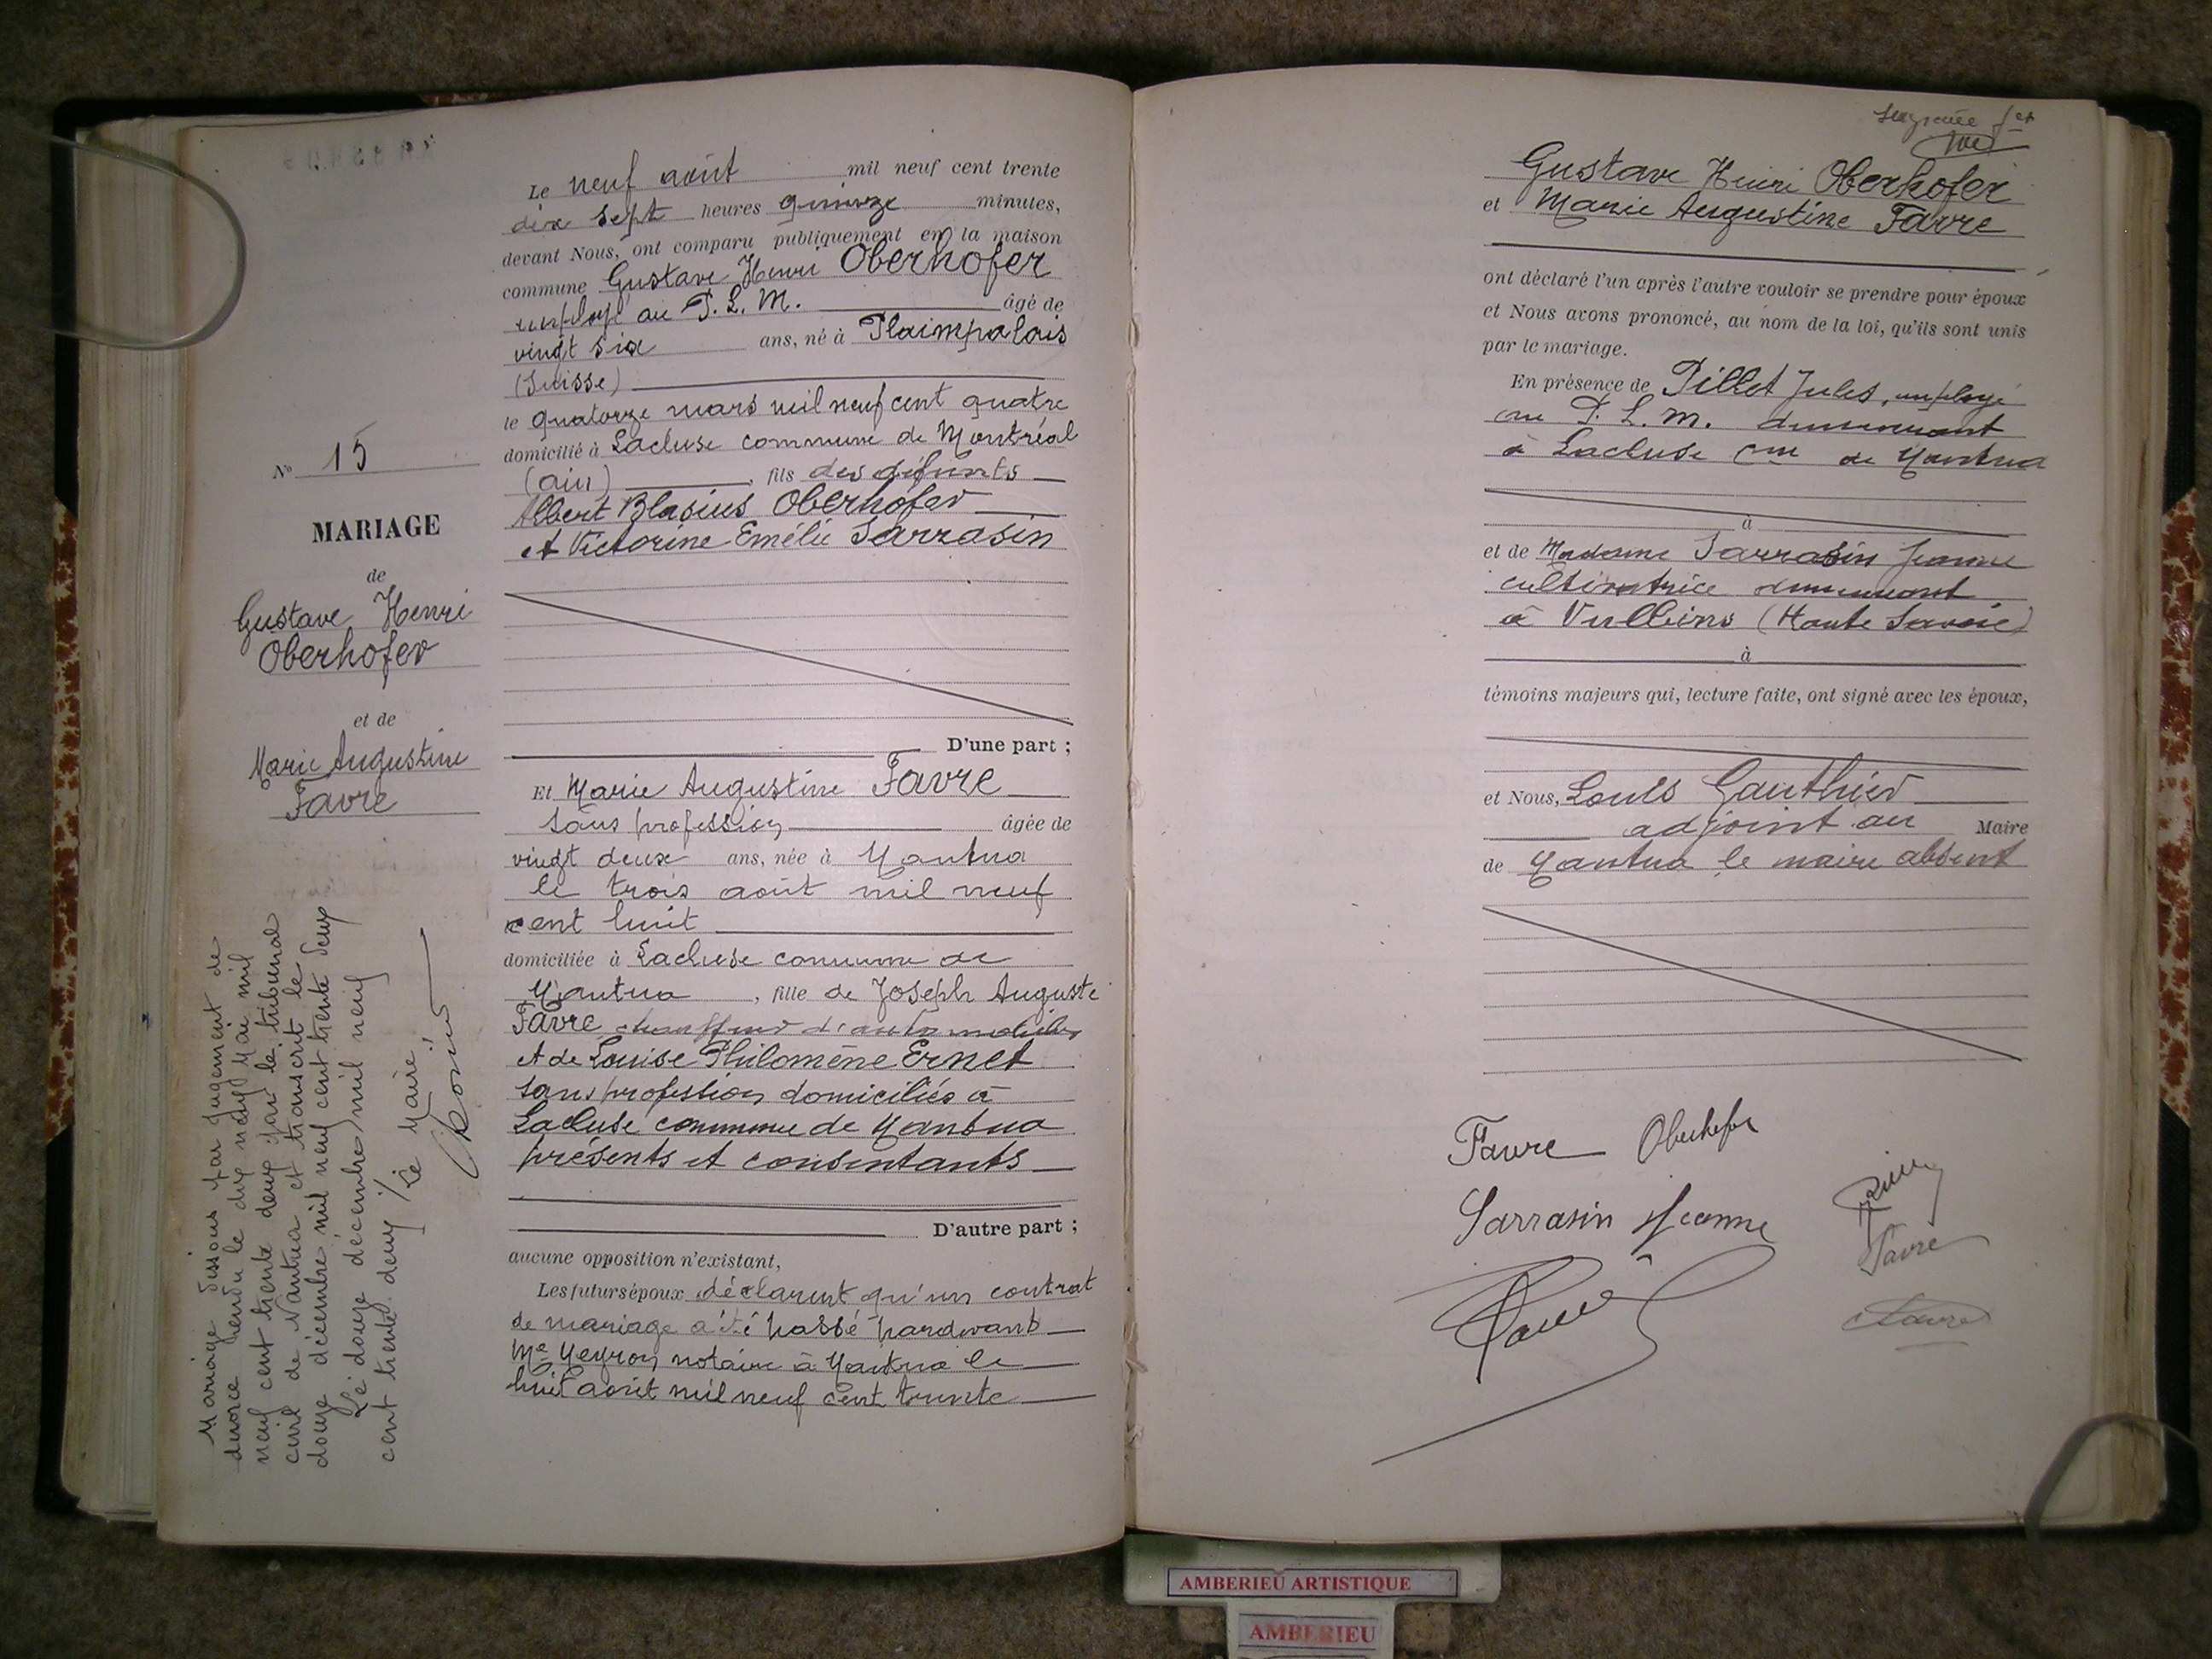 N° 15
MARIAGE
de
Gustave Henri
Oberhofer
et de
Marie Augustine
Favre
Mariage dissous par jugement de
divorce rendu le dix neuf Mai mil
neuf cent trente deux par le tribunal
civil de Nantua et transcrit le
douze décembre mil neuf cent trente deux
Le douze décembre mil neuf
cent trente deux / Le Maire :
Le neuf août mil neuf cent trente
dix sept heures quinze minutes,
devant Nous, ont comparu publiquement en la maison
commune Gustave Henri Oberhofer
employé au P. L. M. âgé de
vingt six ans, né à Plaimpalais
(Suisse)
le quatorze mars mil neuf cent quatre
domicilié à Lacluse commune de Montréal
(ain) , fils des défunts
Albert Blasius Oberhofer
et Victorine Emélie Sarrasin
D'une part ;
Et Marie Augustine Favre
sans profession âgée de
vingt deux ans, née à Nantua
le trois août mil neuf
cent huit
domiciliée à Lacluse commune de
Nantua , fille de Joseph Auguste
Favre chauffeur d'automobiles
et de Louise Philomène Ernet
sans profession domiciliés à
Lacluse commune de Nantua
présents et consentants
D'autre part ;
aucune opposition n'existant,
Les futurs époux déclarent qu'un contrat
de mariage a été passé pardevant
Me Meyron notaire à Nantua le
huit août mil neuf cent trente
Gustave Henri Oberhofer
et Marie Augustine Favre
ont déclaré l'un après l'autre vouloir se prendre pour époux
et Nous avons prononcé, au nom de la loi, qu'ils sont unis
par le mariage.
En présence de Pillet Jules, employé
au P. L. M. demeurant
à Lacluse Cne de Nantua
à
et de Madame Sarrasin Jeanne
cultivatrice demeurant
à Vulbens (Haute Savoie)
à
témoins majeurs qui, lecture faite, ont signé avec les époux,
et Nous, Louis Gauthier
adjoint au Maire
de Nantua le maire absent
Favre Oberhofer
Sarrasin Jeanne
Favre
Favre
AMBERIEU ARTISTIQUE
AMBERIEU